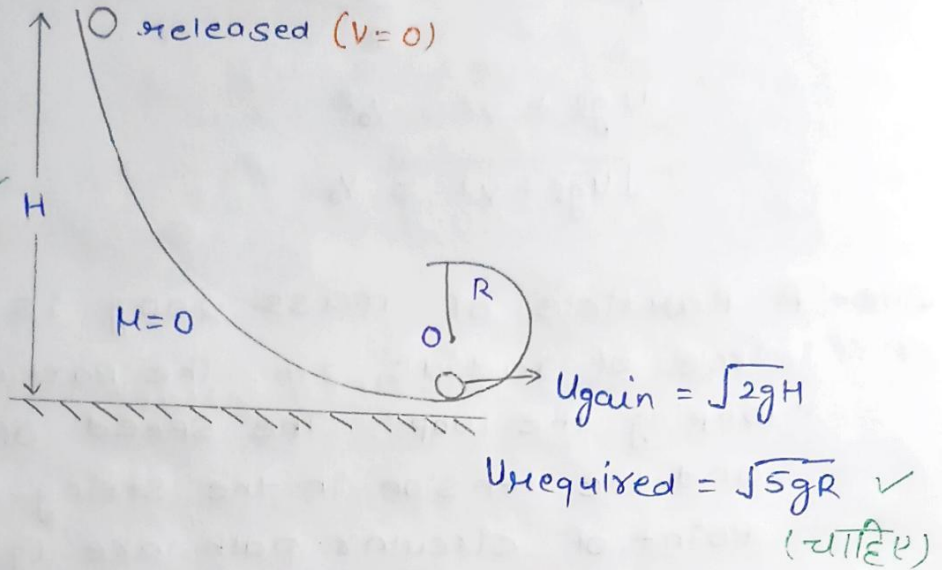 released (V=0)
H
R
μ=0
O
Ugain = √2gH
Urequired = √5gR ✓
(चाहिए)